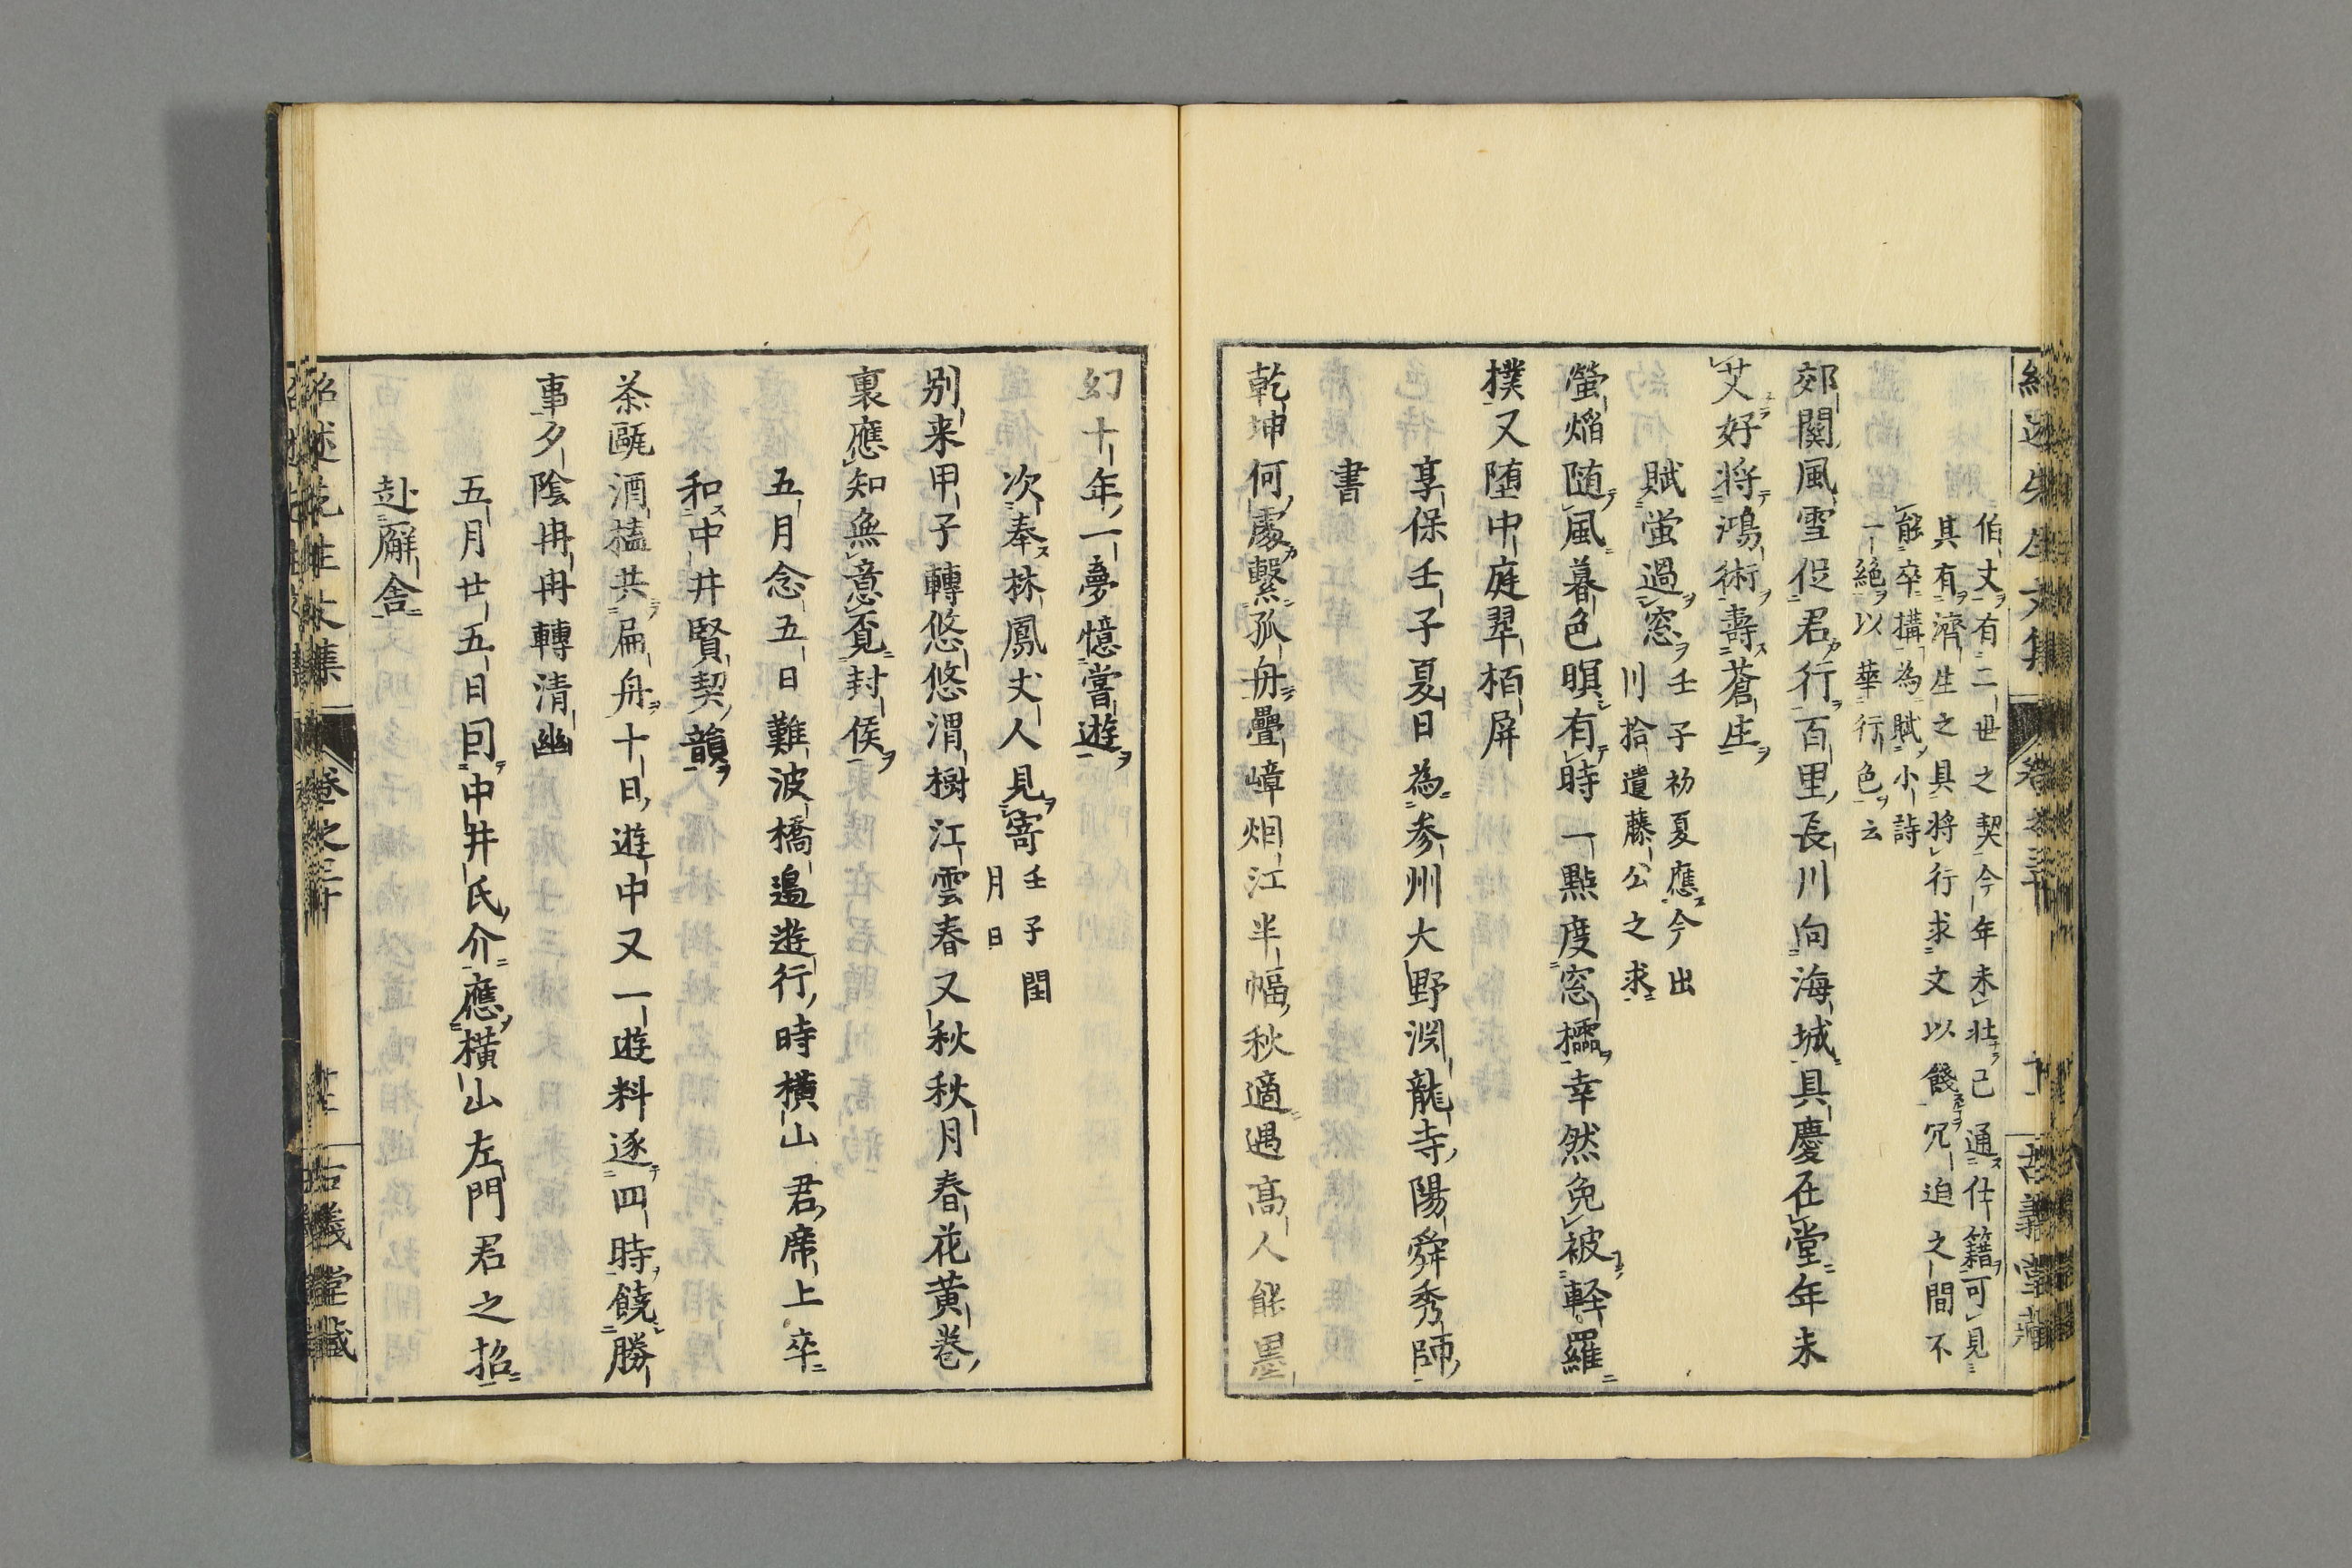 紹述先生文集
卷之三十
十一
古義堂藏
伯丈有二世之契今年未壯已通仕籍可見
其有濟生之具將行求文以餞冗迫之間不
能卒搆為賦小詩
一絕以華行色云
郊關風雪促君行百里長川向海城具慶在堂年未
艾好將鴻術壽蒼生
賦蛍過窓
壬子初夏應今出
川拾遺藤公之求
螢焰随風暮色暝有時一點度窓櫺幸然免被軽羅
撲又堕中庭翠栢屏
享保壬子夏日為参州大野渕龍寺陽舜秀師
書
乾坤何處繫孤舟疊嶂烟江半幅秋適遇高人能墨
幻十年一夢憶嘗遊
次奉林鳳丈人見寄
壬子閏
月日
別来甲子轉悠悠渭樹江雲春又秋秋月春花黄卷
裏應知無意覓封侯
五月念五日難波橋邉遊行時横山君席上卒
和中井賢契韻
茶甌酒榼共扁舟十日遊中又一遊料逐四時饒勝
事夕陰冉冉轉清幽
五月廿五日回中井氏介應横山左門君之招
赴廨舎
紹述先生文集
卷之三十
古義堂藏